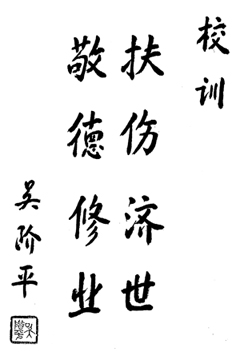 校训
扶伤济世
敬德修业
吴阶平